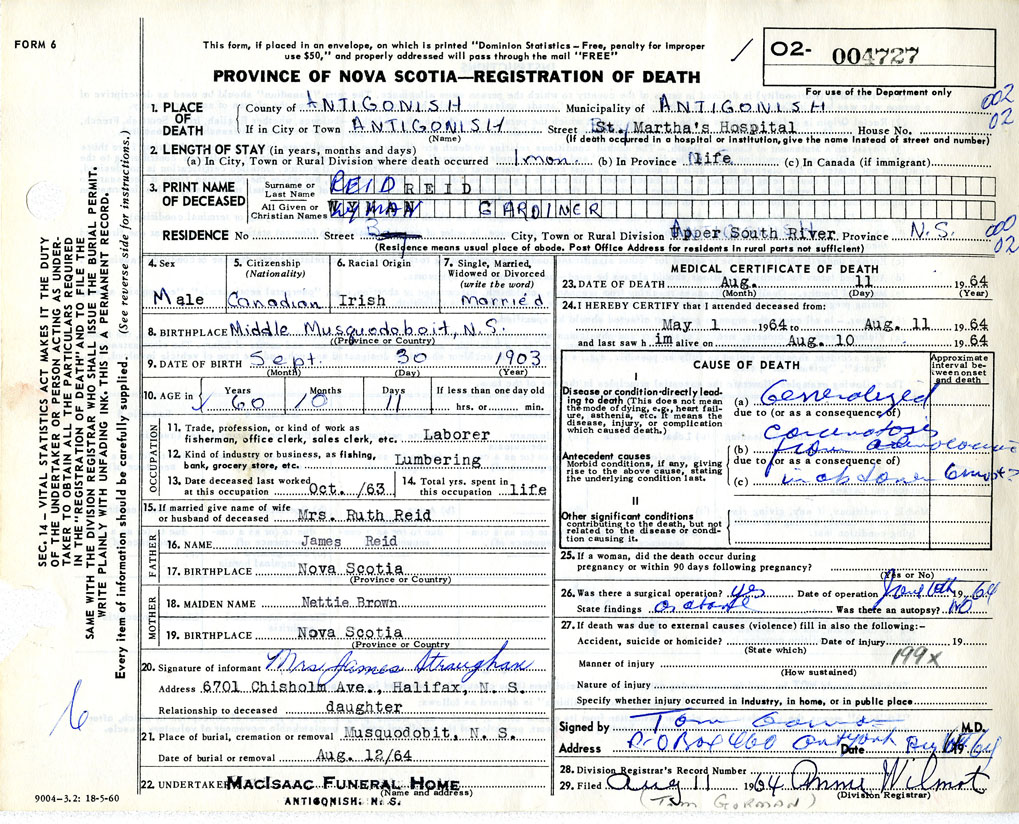 FORM 6
This form, if placed in an envelope, on which is printed "Dominion Statistics – Free, penalty for improper
use $50," and properly addressed will pass through the mail "FREE"
PROVINCE OF NOVA SCOTIA—REGISTRATION OF DEATH
02- 004727
For use of the Department only
002
02
1. PLACE OF DEATH
County of ANTIGONISH Municipality of ANTIGONISH
If in City or Town ANTIGONISH Street St. Martha's Hospital House No.
(Name) (If death occurred in a hospital or institution, give the name instead of street and number)
2. LENGTH OF STAY (in years, months and days)
(a) In City, Town or Rural Division where death occurred 1 mon. (b) In Province life (c) In Canada (if immigrant)
3. PRINT NAME OF DECEASED
Surname or Last Name REID REID
All Given or Christian Names WYMAN GARDINER
RESIDENCE No Street City, Town or Rural Division Upper South River Province N.S.
000
02
(Residence means usual place of abode. Post Office Address for residents in rural parts not sufficient)
4. Sex Male
5. Citizenship (Nationality) Canadian
6. Racial Origin Irish
7. Single, Married, Widowed or Divorced (write the word) married
8. BIRTHPLACE Middle Musquodoboit, N.S.
(Province or Country)
9. DATE OF BIRTH Sept. 30 1903
(Month) (Day) (Year)
10. AGE in Years 60 Months 10 Days 11 If less than one day old hrs. or min.
OCCUPATION
11. Trade, profession, or kind of work as fisherman, office clerk, sales clerk, etc. Laborer
12. Kind of industry or business, as fishing, bank, grocery store, etc. Lumbering
13. Date deceased last worked at this occupation Oct. /63
14. Total yrs. spent in this occupation life
15. If married give name of wife or husband of deceased Mrs. Ruth Reid
FATHER
16. NAME James Reid
17. BIRTHPLACE Nova Scotia
(Province or Country)
MOTHER
18. MAIDEN NAME Nettie Brown
19. BIRTHPLACE Nova Scotia
(Province or Country)
20. Signature of informant Mrs James Straughan
Address 6701 Chisholm Ave., Halifax, N. S.
Relationship to deceased daughter
21. Place of burial, cremation or removal Musquodobit, N. S.
Date of burial or removal Aug. 12/64
22. UNDERTAKER MACISAAC FUNERAL HOME
(Name and address)
ANTIGONISH, N. S.
9004–3.2: 18-5-60
MEDICAL CERTIFICATE OF DEATH
23. DATE OF DEATH Aug. 11 1964
(Month) (Day) (Year)
24. I HEREBY CERTIFY that I attended deceased from:
May 1 1964 to Aug. 11 1964
and last saw him alive on Aug. 10 1964
CAUSE OF DEATH
Approximate interval between onset and death
I
Disease or condition directly leading to death (This does not mean the mode of dying, e.g., heart failure, asthenia, etc. It means the disease, injury, or complication which caused death.)
(a) Generalized
due to (or as a consequence of)
carcinotosis
Antecedent causes
Morbid conditions, if any, giving rise to the above cause, stating the underlying condition last.
(b) from
due to (or as a consequence of)
(c) in 6 mos
II
Other significant conditions
contributing to the death, but not related to the disease or condition causing it.
25. If a woman, did the death occur during pregnancy or within 90 days following pregnancy?
(Yes or No)
26. Was there a surgical operation? yes Date of operation June 1964
State findings as above Was there an autopsy? NO
27. If death was due to external causes (violence) fill in also the following:–
Accident, suicide or homicide? Date of injury 19
(State which)
199x
Manner of injury
(How sustained)
Nature of injury
Specify whether injury occurred in industry, in home, or in public place
Signed by Tom Gorman M.D.
Address P.O Box 460 Date 1964
28. Division Registrar's Record Number
29. Filed Aug 11 1964 Anne Wilmot
(Division Registrar)
(Tom Gorman)
SEC. 14 – VITAL STATISTICS ACT MAKES IT THE DUTY
OF THE UNDERTAKER OR PERSON ACTING AS UNDER-
TAKER TO OBTAIN ALL THE PARTICULARS REQUIRED
IN THE "REGISTRATION OF DEATH" AND TO FILE THE
SAME WITH THE DIVISION REGISTRAR WHO SHALL ISSUE THE BURIAL PERMIT.
WRITE PLAINLY WITH UNFADING INK. THIS IS A PERMANENT RECORD.
Every item of information should be carefully supplied. (See reverse side for instructions.)
6